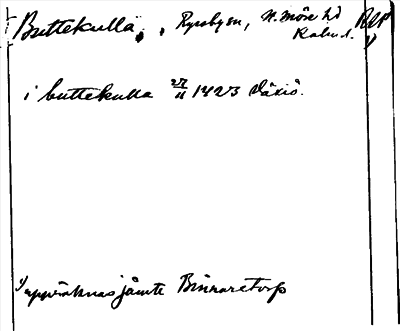 Buttekulla, Ryssbyn, N. Möre hd RAP
Kalm. l. 1)
i buttekulla 27/11 1423 Växiö.
1) uppräknas jämte Binnaretorp